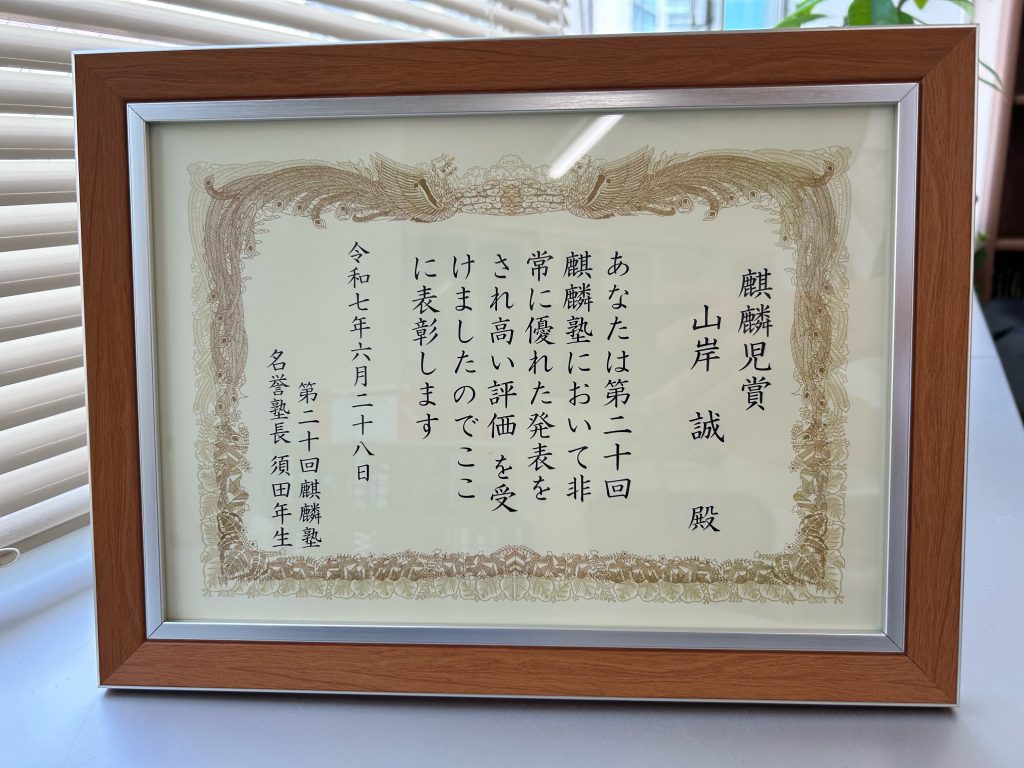 麒麟児賞
山岸 誠 殿
あなたは第二十回
麒麟塾において非
常に優れた発表を
され高い評価を受
けましたのでここ
に表彰します
令和七年六月二十八日
第二十回麒麟塾
名誉塾長 須田年生